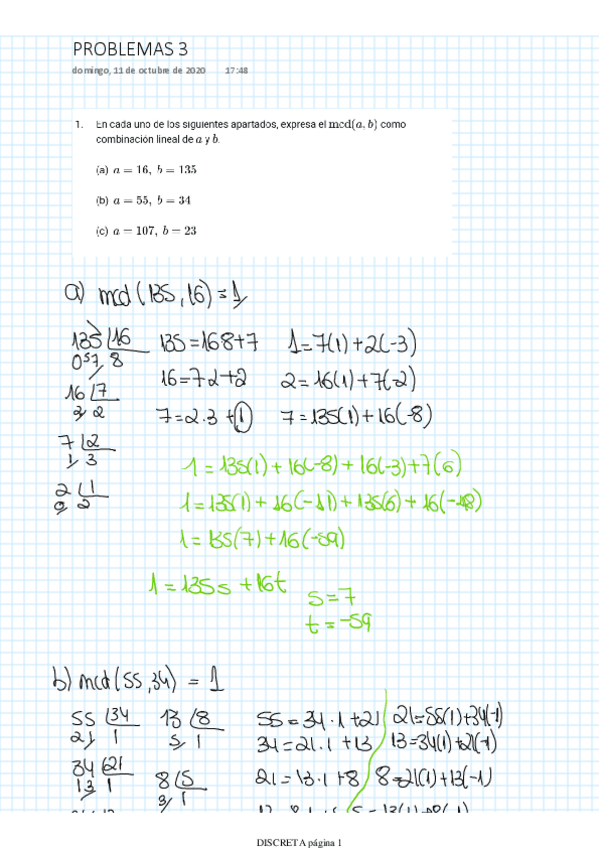 PROBLEMAS 3
domingo, 11 de octubre de 2020 17:48
1. En cada uno de los siguientes apartados, expresa el mcd(a, b) como
combinación lineal de a y b.
(a) a = 16, b = 135
(b) a = 55, b = 34
(c) a = 107, b = 23
a) mcd(135,16)=1
135 |16
057 8
16 |7
2 2
7 |2
1 3
2 |1
0 2
135=16·8+7
16=7·2+2
7=2·3+1
1=7(1)+2(-3)
2=16(1)+7(-2)
7=135(1)+16(-8)
1=135(1)+16(-8)+16(-3)+7(6)
1=135(1)+16(-11)+135(6)+16(-48)
1=135(7)+16(-59)
1=135s+16t
s=7
t=-59
b) mcd(55,34) = 1
55 |34
21 1
34 |21
13 1
13 |8
5 1
8 |5
3 1
55=34·1+21
34=21·1+13
21=13·1+8
21=55(1)+34(-1)
13=34(1)+21(-1)
8=21(1)+13(-1)
DISCRETA página 1